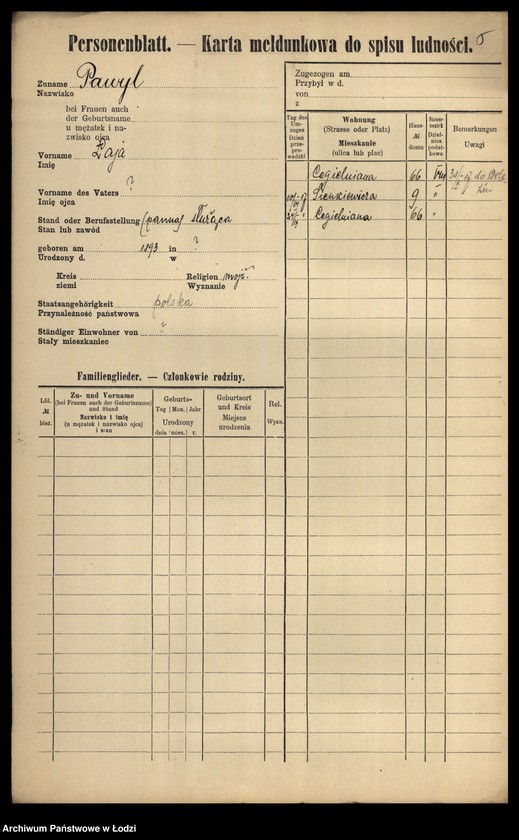 Personenblatt. — Karta meldunkowa do spisu ludności.
Zuname Pawyl
Nazwisko
bei Frauen auch
der Geburtsname
u mężatek i na-
zwisko ojca
Vorname Łaja
Imię
Vorname des Vaters ?
Imię ojca
Stand oder Berufsstellung (panna) Służąca
Stan lub zawód
geboren am 1893 in ?
Urodzony d. w
Kreis Religion mojż.
ziemi Wyznanie
Staatsangehörigkeit polska
Przynależność państwowa
Ständiger Einwohner von ?
Stały mieszkaniec
Familienglieder. — Członkowie rodziny.
Lfd. № bież.
Zu- und Vorname
(bei Frauen auch der Geburtsname)
und Stand
Nazwisko i imię
(u mężatek i nazwisko ojca)
i stan
Geburts-
Tag | Mon. | Jahr
Urodzony
dnia | mies. | r.
Geburtsort
und Kreis
Miejsce
urodzenia
Rel.
Wyzn.
Zugezogen am
Przybył w d.
von
z
Tag des
Um-
zuges
Dzień
prze-
prowadzki
Wohnung
(Strasse oder Platz)
Mieszkanie
(ulica lub plac)
Haus-
№
domu
Steuer-
bezirk
Dziel-
nica
podat-
kowa
Bemerkungen
Uwagi
Cegielniana 66 VIII
Sienkiewicza 9 "
Cegielniana 66 "
Archiwum Państwowe w Łodzi